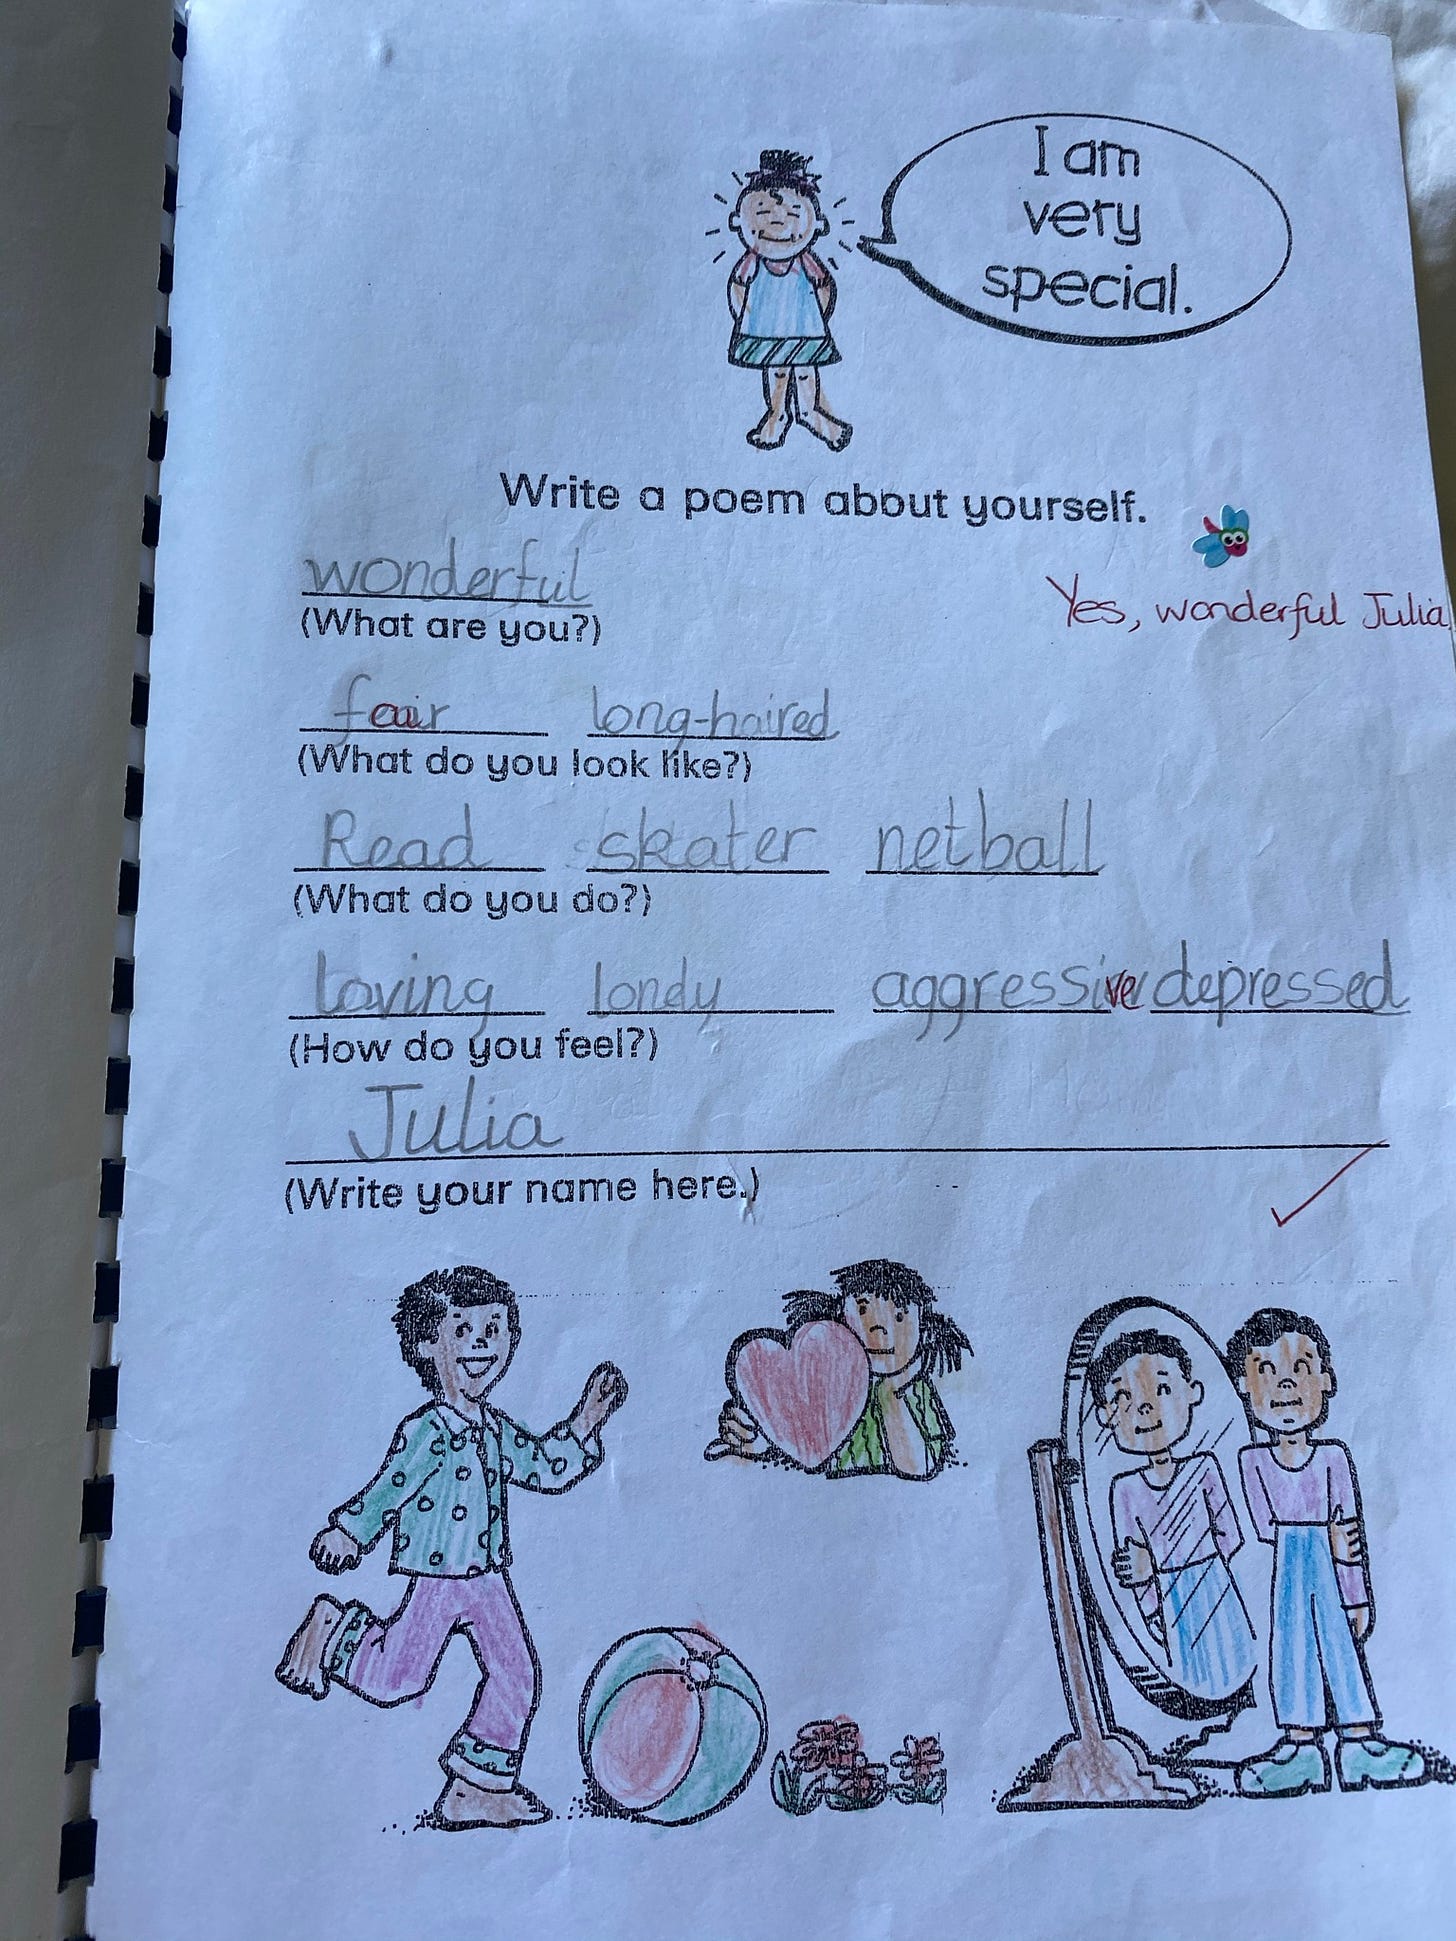 I am
very
special.
Write a poem about yourself.
wonderful
Yes, wonderful Julia
(What are you?)
fair long-haired
(What do you look like?)
Read skater netball
(What do you do?)
loving lonely aggressive depressed
(How do you feel?)
Julia
(Write your name here.)